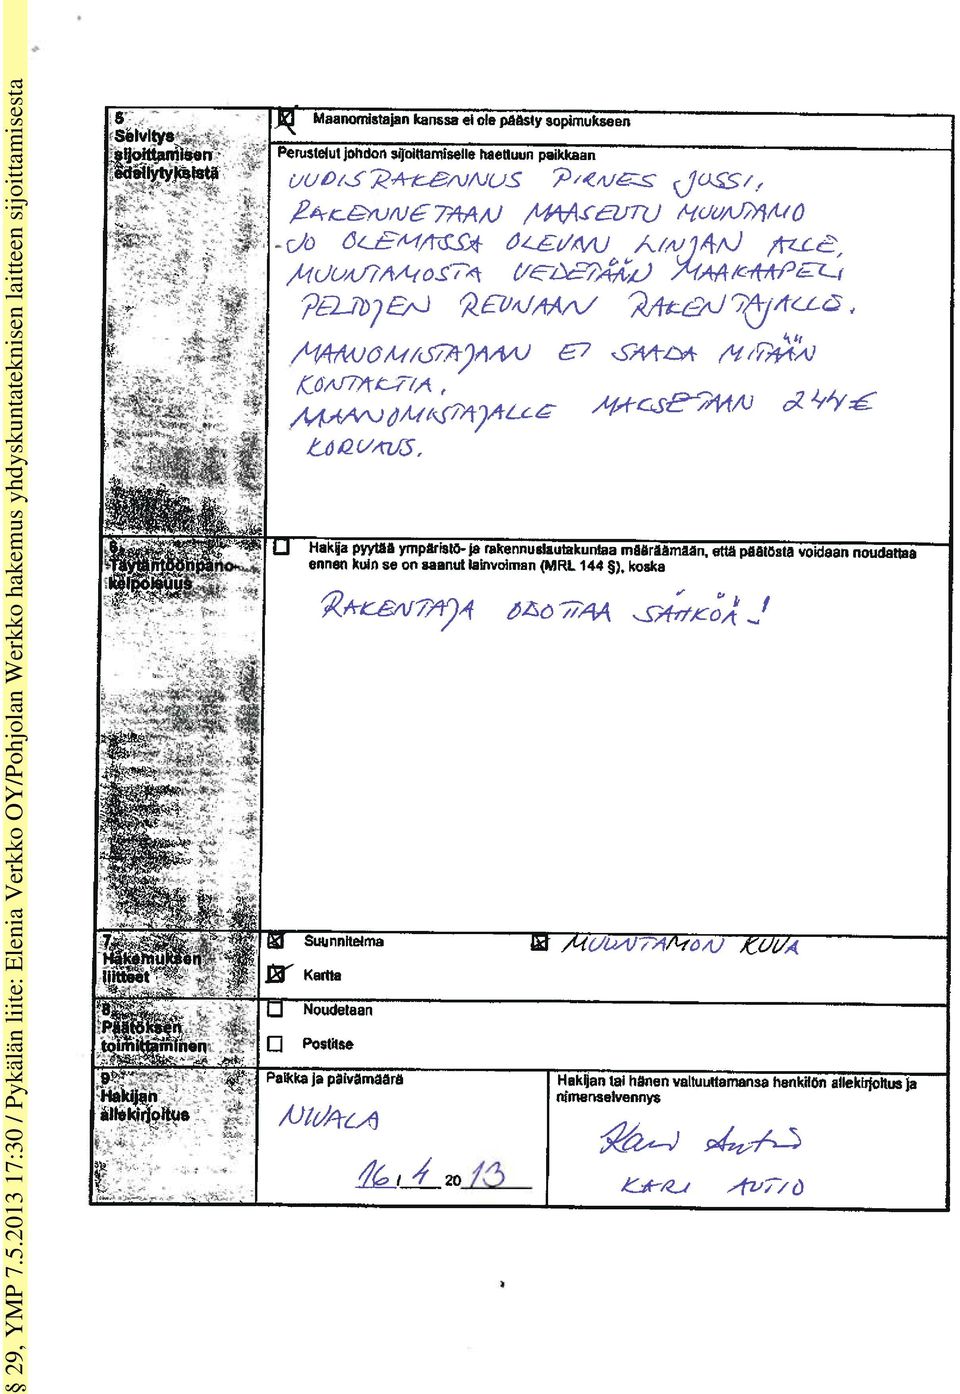 § 29, YMP 7.5.2013 17:30 / Pykälän liite: Elenia Verkko OY/Pohjolan Werkko hakemus yhdyskuntateknisen laitteen sijoittamisesta
5
Selvitys
sijoittamisen
edellytyksistä
☒ Maanomistajan kanssa ei ole päästy sopimukseen
Perustelut johdon sijoittamiselle haettuun paikkaan
UUDISRAKENNUS PIRNES JUSSI,
RAKENNETAAN MAASEUTU MUUNTAMO
JO OLEMASSA OLEVAN LINJAN ALLE,
MUUNTAMOSTA VEDETÄÄN MAAKAAPELI
PELTOJEN REUNAAN RAKENTAJALLE.
MAANOMISTAJAAN EI SAADA MITÄÄN
KONTAKTIA.
MAANOMISTAJALLE MAKSETAAN 244€
KORVAUS.
6
Täytäntöönpano-
kelpoisuus
☐ Hakija pyytää ympäristö- ja rakennuslautakuntaa määräämään, että päätöstä voidaan noudattaa
ennen kuin se on saanut lainvoiman (MRL 144 §), koska
RAKENTAJA ODOTTAA SÄHKÖÄ!
7
Hakemuksen
liitteet
☒ Suunnitelma ☒ MUUNTAMON KUVA
☒ Kartta
8
Päätöksen
toimittaminen
☐ Noudetaan
☐ Postitse
9
Hakijan
allekirjoitus
Paikka ja päivämäärä
NIVALA
16 / 4 20 13
Hakijan tai hänen valtuuttamansa henkilön allekirjoitus ja
nimenselvennys
Kari Autio
KARI AUTIO